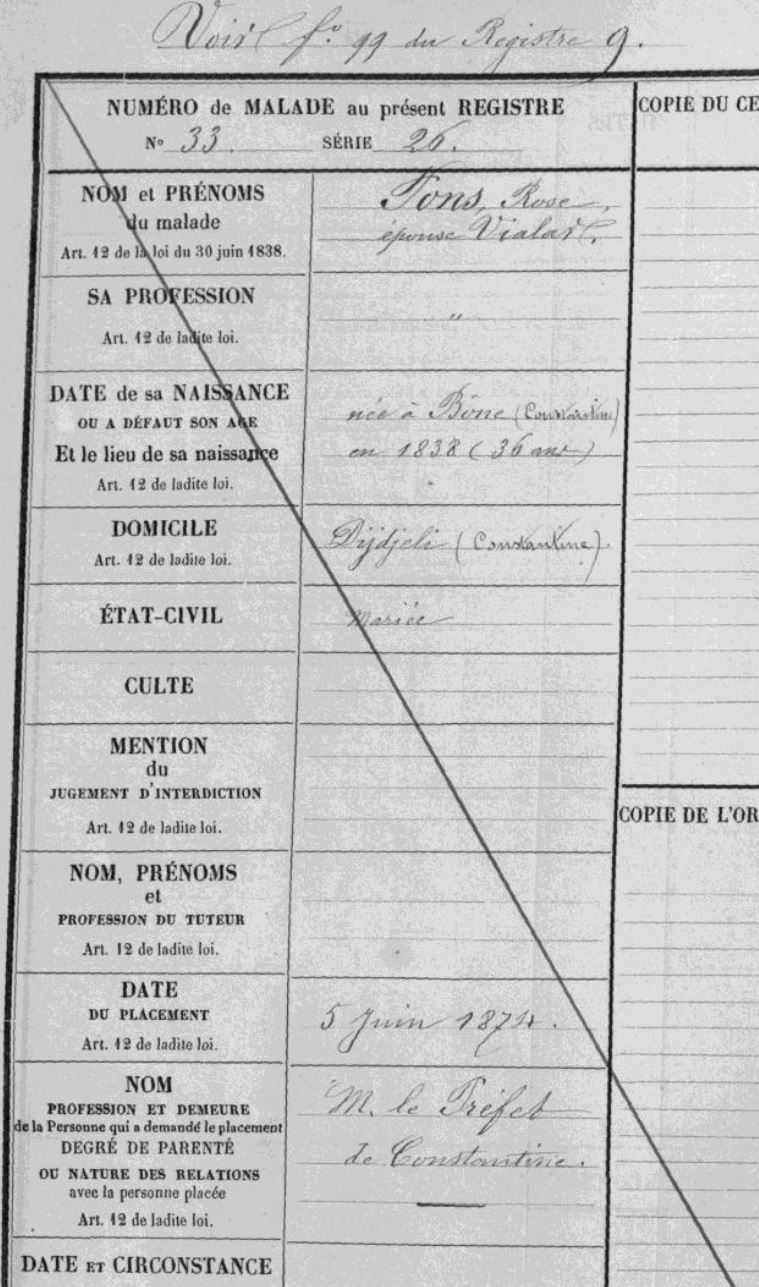 Voir f° 99 du Registre 9.
NUMÉRO de MALADE au présent REGISTRE
N° 33. SÉRIE 26.
COPIE DU CE
NOM et PRÉNOMS
du malade
Art. 12 de la loi du 30 juin 1838.
Fons, Rose,
épouse Vialar.
SA PROFESSION
Art. 12 de ladite loi.
"
DATE de sa NAISSANCE
OU A DÉFAUT SON AGE
Et le lieu de sa naissance
Art. 12 de ladite loi.
née à Bône (Constantine)
en 1838 (36 ans)
DOMICILE
Art. 12 de ladite loi.
Djidjeli (Constantine).
ÉTAT-CIVIL
Mariée
CULTE
MENTION
du
JUGEMENT D'INTERDICTION
Art. 12 de ladite loi.
COPIE DE L'OR
NOM, PRÉNOMS
et
PROFESSION DU TUTEUR
Art. 12 de ladite loi.
DATE
DU PLACEMENT
Art. 12 de ladite loi.
5 Juin 1874.
NOM
PROFESSION ET DEMEURE
de la Personne qui a demandé le placement
DEGRÉ DE PARENTÉ
OU NATURE DES RELATIONS
avec la personne placée
Art. 12 de ladite loi.
M. le Préfet
de Constantine.
DATE ET CIRCONSTANCE